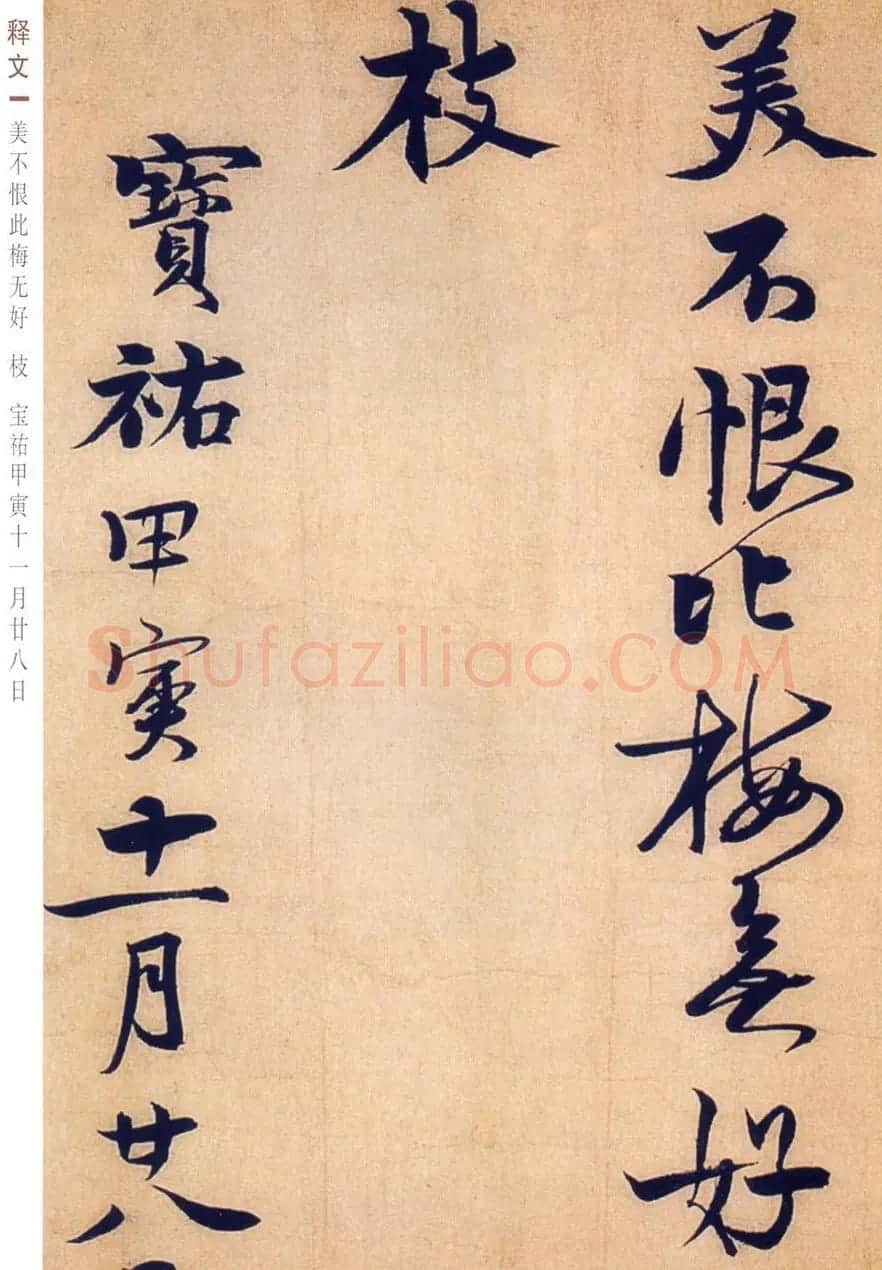 美不恨此梅無好
枝
寶祐甲寅十一月廿八
释文 美不恨此梅无好 枝 宝祐甲寅十一月廿八日
Shufaziliao.COM